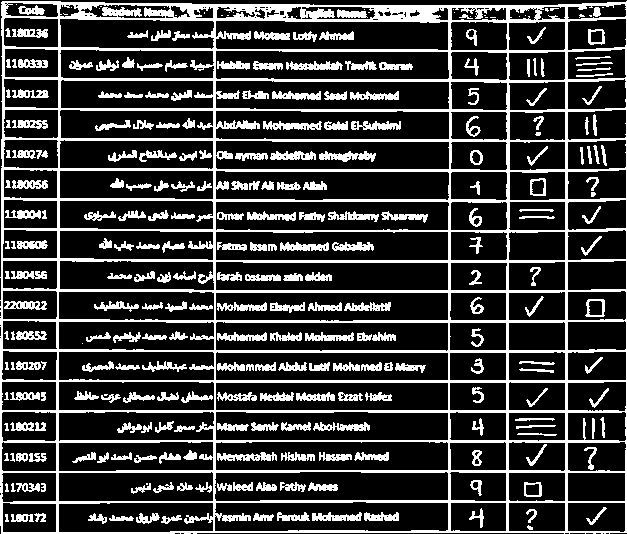 Code Student Name English Name 1 2 3
1180236 احمد معتز لطفى احمد Ahmed Motaaz Lotfy Ahmed 9 ✓ □
1180333 حبيبة عصام حسب الله توفيق عمران Habiba Essam Hassaballah Tawfik Omran 4 ||| ☰
1180128 سعد الدين محمد سعد محمد Saad El-din Mohamed Saad Mohamed 5 ✓ ✓
1180255 عبد الله محمد جلال السحيمى AbdAllah Mohammed Galal El-Suhaimi 6 ? ||
1180274 علا ايمن عبدالفتاح المغربى Ola ayman abdelftah elmaghraby 0 ✓ ||||
1180056 على شريف على حسب الله Ali Sharif Ali Hasb Allah 1 □ ?
1180041 عمر محمد فتحى شلقامى شعراوى Omar Mohamed Fathy Shaarawy 6 = ✓
1180606 فاطمة عصام محمد جاب الله Fatma Issam Mohamed Gaballah 7 ✓
1180456 فرح اسامه زين الدين محمد farah ossama zain elden 2 ?
2200022 محمد السيد احمد عبداللطيف Mohamed Elsayed Ahmed Abdellatif 6 ✓ □
1180552 محمد خالد محمد ابراهيم شمس Mohamed Khaled Mohamed Ebrahim 5
1180207 محمد عبداللطيف محمد المصرى Mohammed Abdul Latif Mohamed El Masry 3 = ✓
1180045 مصطفى نضال مصطفى عزت حافظ Mostafa Neddal Mostafa Ezzat Hafez 5 ✓ ✓
1180212 منار سمير كامل ابوهواش Manar Samir Kamel AboHawash 4 ☰ |||
1180155 منه الله هشام حسن احمد ابو النصر Mennatallah Hisham Hassan Ahmed 8 ✓ ?
1170343 وليد علاء فتحى انيس Waleed Alaa Fathy Anees 9 □
1180172 ياسمين عمرو فاروق محمد رشاد Yasmin Amr Farouk Mohamed Rashad 4 ? ✓